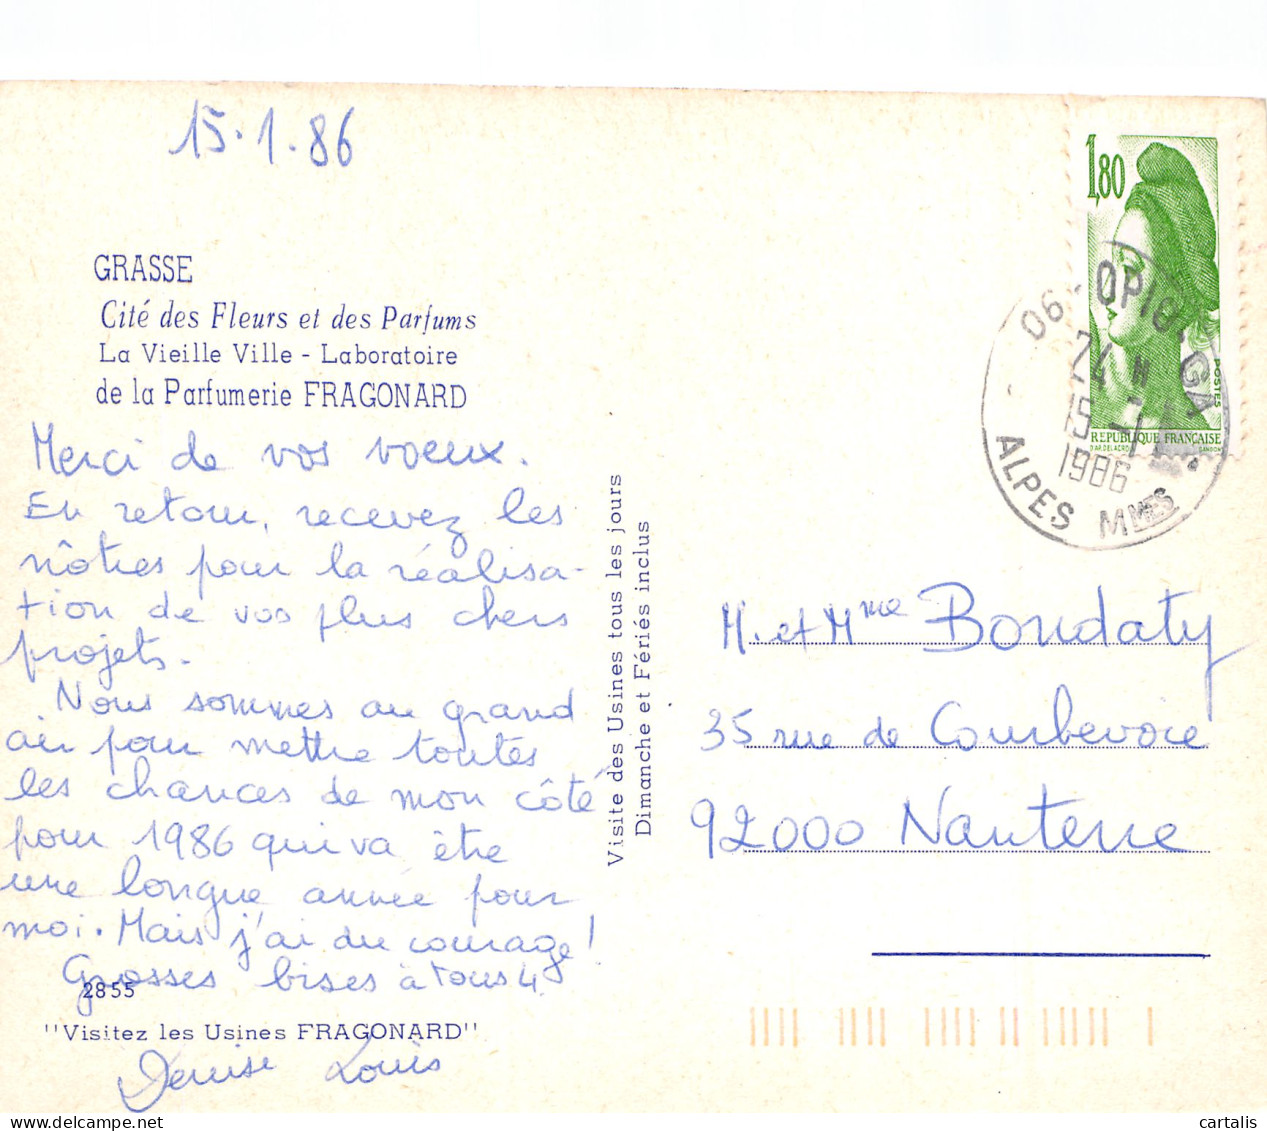 15.1.86
GRASSE
Cité des Fleurs et des Parfums
La Vieille Ville - Laboratoire
de la Parfumerie FRAGONARD
Merci de vos voeux.
En retour, recevez les
nôtres pour la réalisa-
tion de vos plus chers
projets.
Nous sommes au grand
air pour mettre toutes
les chances de mon côté
pour 1986 qui va être
une longue année pour
moi. Mais j'ai du courage!
Grosses bises à tous 4.
2855
"Visitez les Usines FRAGONARD"
Denise Louis
Visite des Usines tous les jours
Dimanche et Fériés inclus
1,80
POSTES
REPUBLIQUE FRANÇAISE
D'AP. DELACROIX GANDON
06 - OPIO - GA
15 -1
1986
ALPES MMES
M. et Mme Bondaty
35 rue de Courbevoie
92000 Nanterre
cartalis